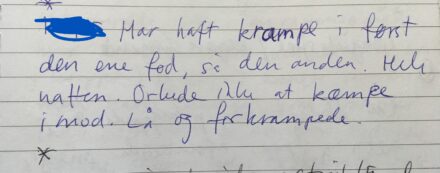 *
Har haft krampe i først
den ene fod, så den anden. Hele
natten. Orkede ikke at kæmpe
imod. Lå og forkrampede.
*